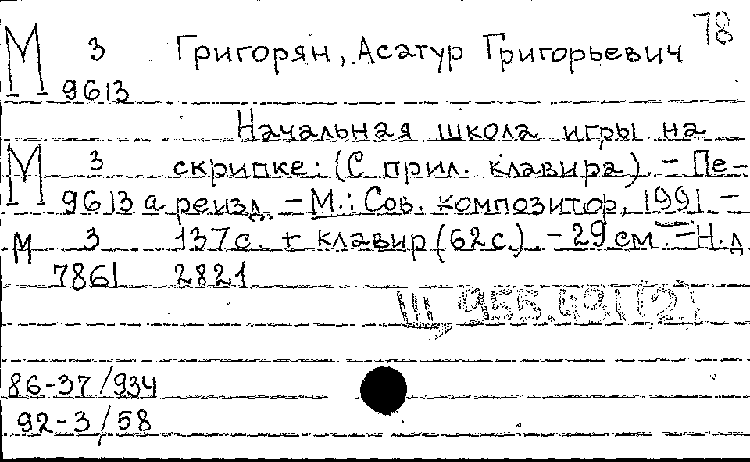 78
М 3 Григорян, Асатур Григорьевич
9613
Начальная школа игры на
М 3 скрипке: (С прил. клавира) - Пе-
9613 а реизд. - М.: Сов. композитор, 1991 -
М 3 137с. + клавир (62с.) - 29см - Н.д
7861 2821
Щ 955.491(2)
86-37/934
92-3/58